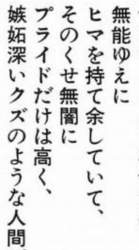 無能ゆえに
ヒマを持て余していて、
そのくせ無闇に
プライドだけは高く、
嫉妬深いクズのような人間